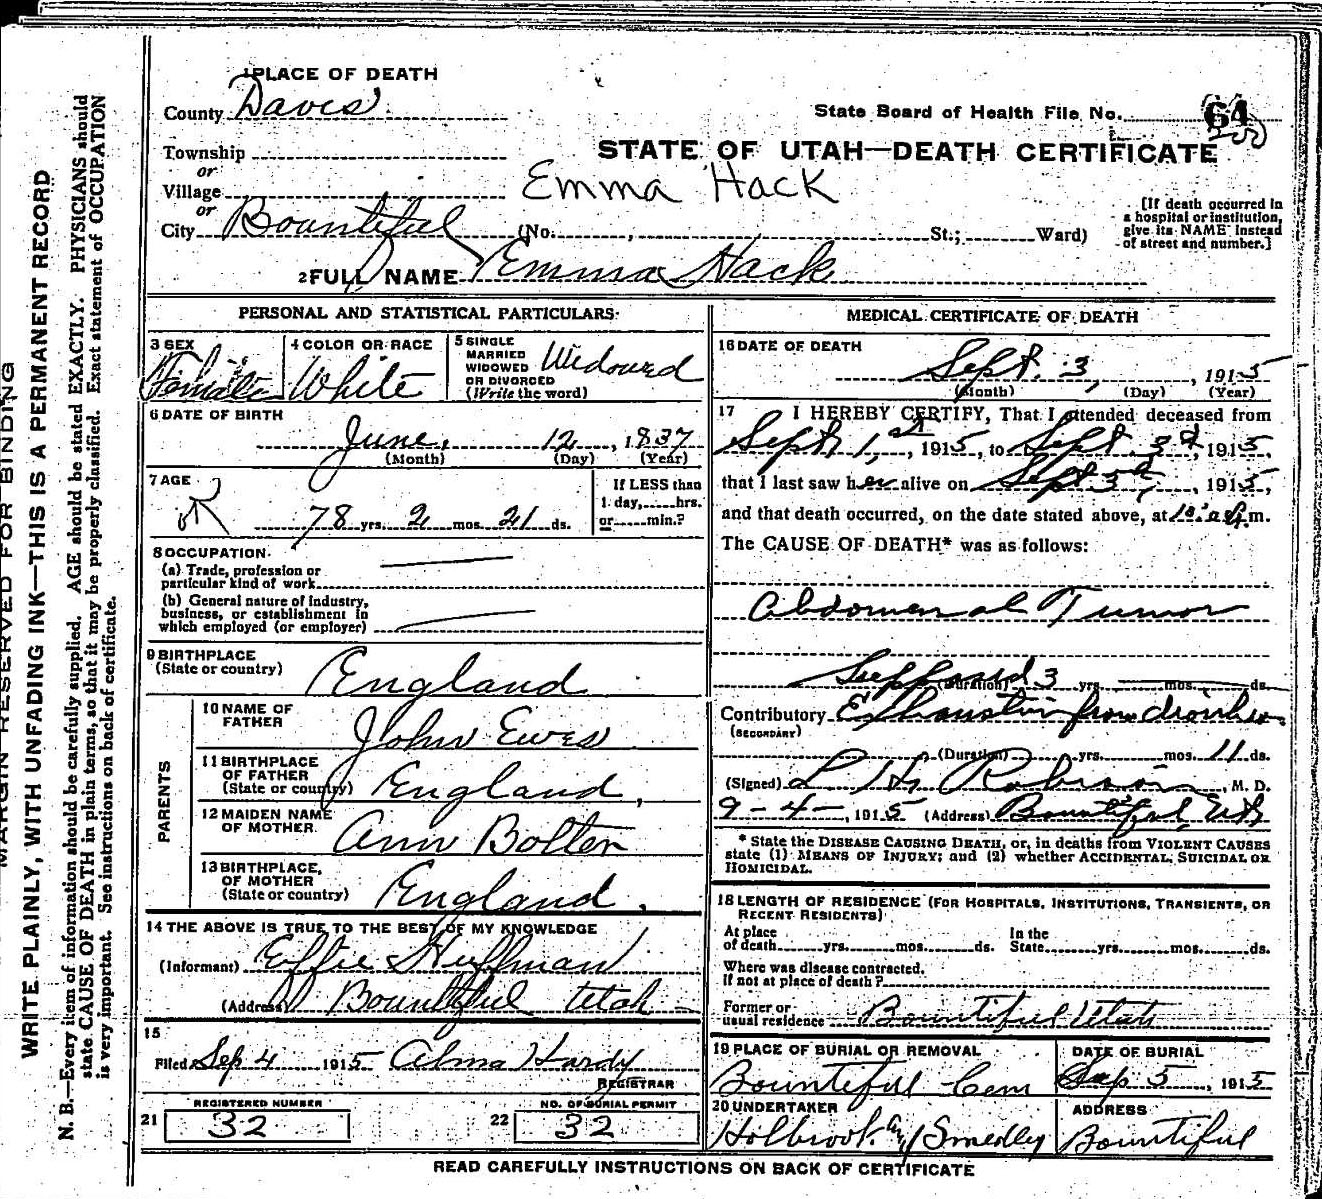 MARGIN RESERVED FOR BINDING
WRITE PLAINLY, WITH UNFADING INK—THIS IS A PERMANENT RECORD
N. B.—Every item of information should be carefully supplied. AGE should be stated EXACTLY. PHYSICIANS should
state CAUSE OF DEATH in plain terms, so that it may be properly classified. Exact statement of OCCUPATION
is very important. See instructions on back of certificate.
1 PLACE OF DEATH
County Davis
State Board of Health File No. 64
Township
or
Village
or
City Bountiful (No. , St.; Ward)
STATE OF UTAH—DEATH CERTIFICATE
Emma Hack
[If death occurred in
a hospital or institution,
give its NAME instead
of street and number.]
2 FULL NAME Emma Hack
PERSONAL AND STATISTICAL PARTICULARS
3 SEX
Female
4 COLOR OR RACE
White
5 SINGLE
MARRIED
WIDOWED
OR DIVORCED
(Write the word)
Widowed
6 DATE OF BIRTH
June, 12, 1837
(Month) (Day) (Year)
7 AGE
78 yrs. 2 mos. 21 ds.
If LESS than
1 day, hrs.
or min.?
8 OCCUPATION
(a) Trade, profession or
particular kind of work
(b) General nature of industry,
business, or establishment in
which employed (or employer)
9 BIRTHPLACE
(State or country)
England
PARENTS
10 NAME OF
FATHER
John Eives
11 BIRTHPLACE
OF FATHER
(State or country)
England,
12 MAIDEN NAME
OF MOTHER
Ann Bolten
13 BIRTHPLACE,
OF MOTHER
(State or country)
England.
14 THE ABOVE IS TRUE TO THE BEST OF MY KNOWLEDGE
(Informant) Effie Huffman
(Address) Bountiful Utah
15
Filed Sep 4 1915 Alma Hardy
REGISTRAR
REGISTERED NUMBER
21 32
NO. OF BURIAL PERMIT
22 32
MEDICAL CERTIFICATE OF DEATH
16 DATE OF DEATH
Sept. 3, , 1915
(Month) (Day) (Year)
17 I HEREBY CERTIFY, That I attended deceased from
Sept 1st, 1915, to Sept. 3d, 1915,
that I last saw her alive on Sept 3d, 1915,
and that death occurred, on the date stated above, at m.
The CAUSE OF DEATH* was as follows:
Abdomenal Tumor
Supposed (Duration) 3 yrs. mos. ds.
Contributory Exhaustion from diorrhea
(SECONDARY)
(Duration) yrs. mos. 11 ds.
(Signed) L H Robinson, M. D.
9-4-, 1915 (Address) Bountiful, Utah
* State the DISEASE CAUSING DEATH, or, in deaths from VIOLENT CAUSES
state (1) MEANS OF INJURY; and (2) whether ACCIDENTAL, SUICIDAL OR
HOMICIDAL.
18 LENGTH OF RESIDENCE (FOR HOSPITALS, INSTITUTIONS, TRANSIENTS, OR
RECENT RESIDENTS)
At place
of death yrs. mos. ds.
In the
State yrs. mos. ds.
Where was disease contracted.
If not at place of death?
Former or
usual residence Bountiful Utah
19 PLACE OF BURIAL OR REMOVAL
Bountiful Cem
DATE OF BURIAL
Sep 5, 1915
20 UNDERTAKER
Holbrook &/ Smedley
ADDRESS
Bountiful
READ CAREFULLY INSTRUCTIONS ON BACK OF CERTIFICATE